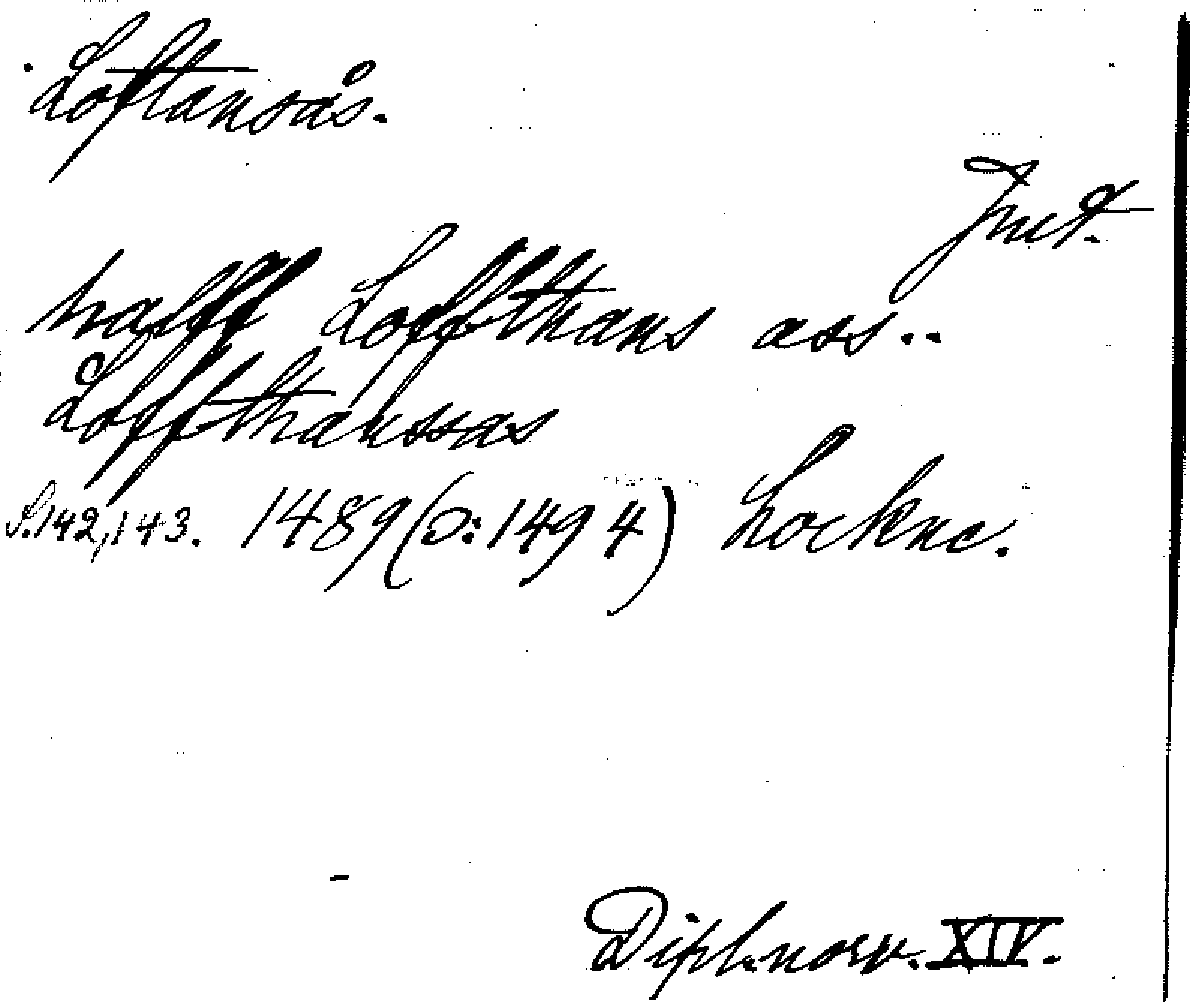 Loftansås.
Jmt.
halff Loffthans ass..
Loffthanssas
S.142,143. 1489 (ɔ: 1494) Lockne.
Dipl. norv. XIV.